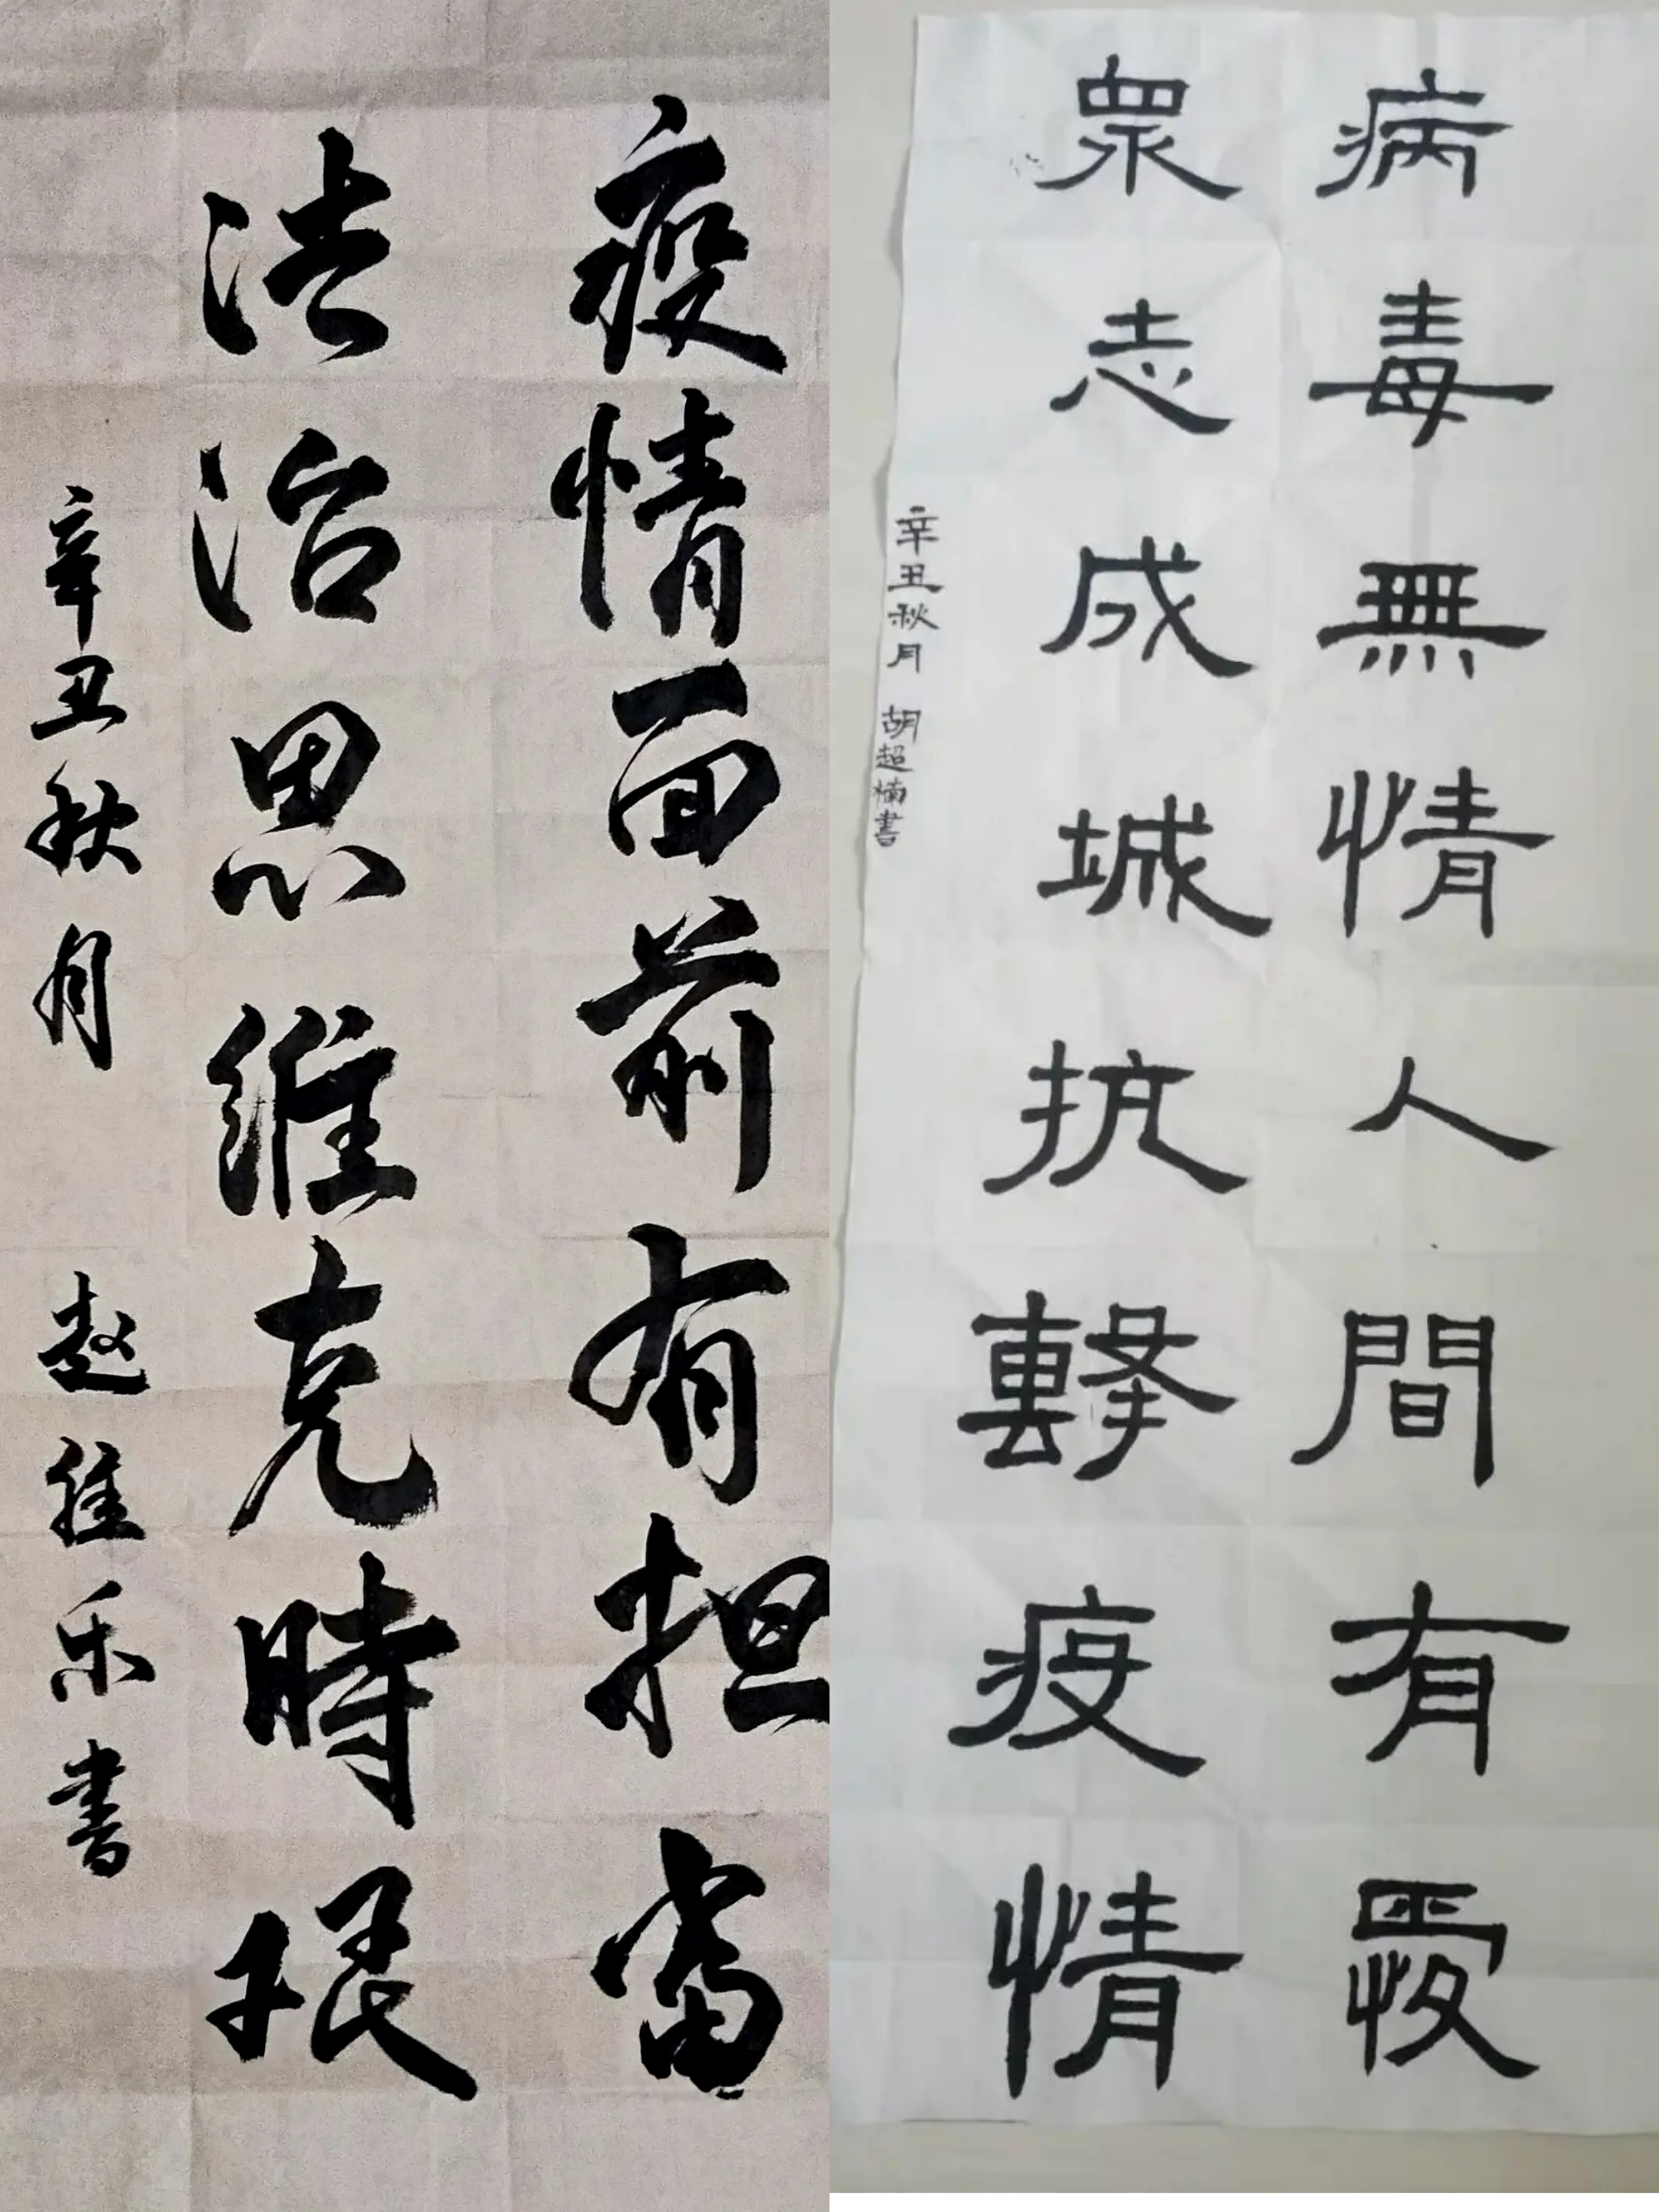 疫情面前有担當
法治思維克時艰
辛丑秋月 赵維乐書
病毒無情人間有愛
眾志成城抗擊疫情
辛丑秋月 胡超楠書